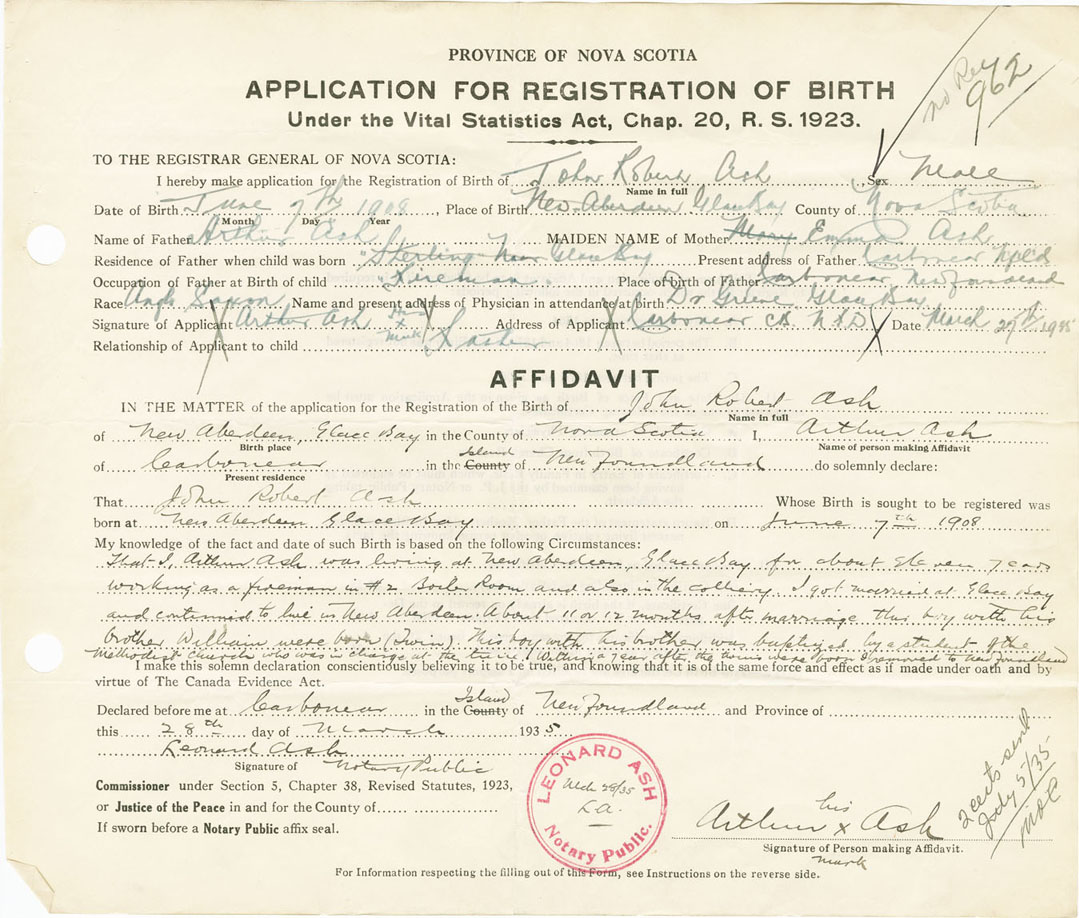 PROVINCE OF NOVA SCOTIA
APPLICATION FOR REGISTRATION OF BIRTH
Under the Vital Statistics Act, Chap. 20, R. S. 1923.
no Rec
962
TO THE REGISTRAR GENERAL OF NOVA SCOTIA:
I hereby make application for the Registration of Birth of John Robert Ash Sex Male
Name in full
Date of Birth June 7th 1908, Place of Birth New Aberdeen Glace Bay County of Nova Scotia
Month Day Year
Name of Father Arthur Ash MAIDEN NAME of Mother Mary Emma Ash
Residence of Father when child was born Sterling Near Glace Bay Present address of Father Carbonear Nfld
Occupation of Father at Birth of child "Fireman" Place of birth of Father Carbonear Newfoundland
Race Anglo Saxon Name and present address of Physician in attendance at birth Dr Greene Glace Bay
Signature of Applicant Arthur Ash his x mark Address of Applicant Carbonear Nfd Date March 27th 1935
Relationship of Applicant to child Father
AFFIDAVIT
IN THE MATTER of the application for the Registration of the Birth of John Robert Ash
Name in full
of New Aberdeen, Glace Bay in the County of Nova Scotia I, Arthur Ash
Birth place Name of person making Affidavit
of Carbonear in the County Island of Newfoundland do solemnly declare:
Present residence
That John Robert Ash Whose Birth is sought to be registered was
born at New Aberdeen Glace Bay on June 7th 1908
My knowledge of the fact and date of such Birth is based on the following Circumstances:
That I, Arthur Ash was living at New Aberdeen, Glace Bay for about Eleven years
working as a fireman in #2 Boiler Room and also in the colliery. I got married at Glace Bay
and continued to live in New Aberdeen. About 11 or 12 months after marriage this boy with his
brother William were born (Twin). This boy with his brother was baptized by a student of the
Methodist church who was in charge at the time. Within a year after the twins were born I removed to Newfoundland
I make this solemn declaration conscientiously believing it to be true, and knowing that it is of the same force and effect as if made under oath and by
virtue of The Canada Evidence Act.
Declared before me at Carbonear in the County Island of Newfoundland and Province of
this 28th day of March 1935
Leonard Ash
Signature of Notary Public
Commissioner under Section 5, Chapter 38, Revised Statutes, 1923,
or Justice of the Peace in and for the County of
If sworn before a Notary Public affix seal.
LEONARD ASH
Mch 28/35
L.A.
Notary Public.
Arthur his x Ash
Signature of Person making Affidavit.
mark
2 certs sent
July 5/35
For Information respecting the filling out of this Form, see Instructions on the reverse side.